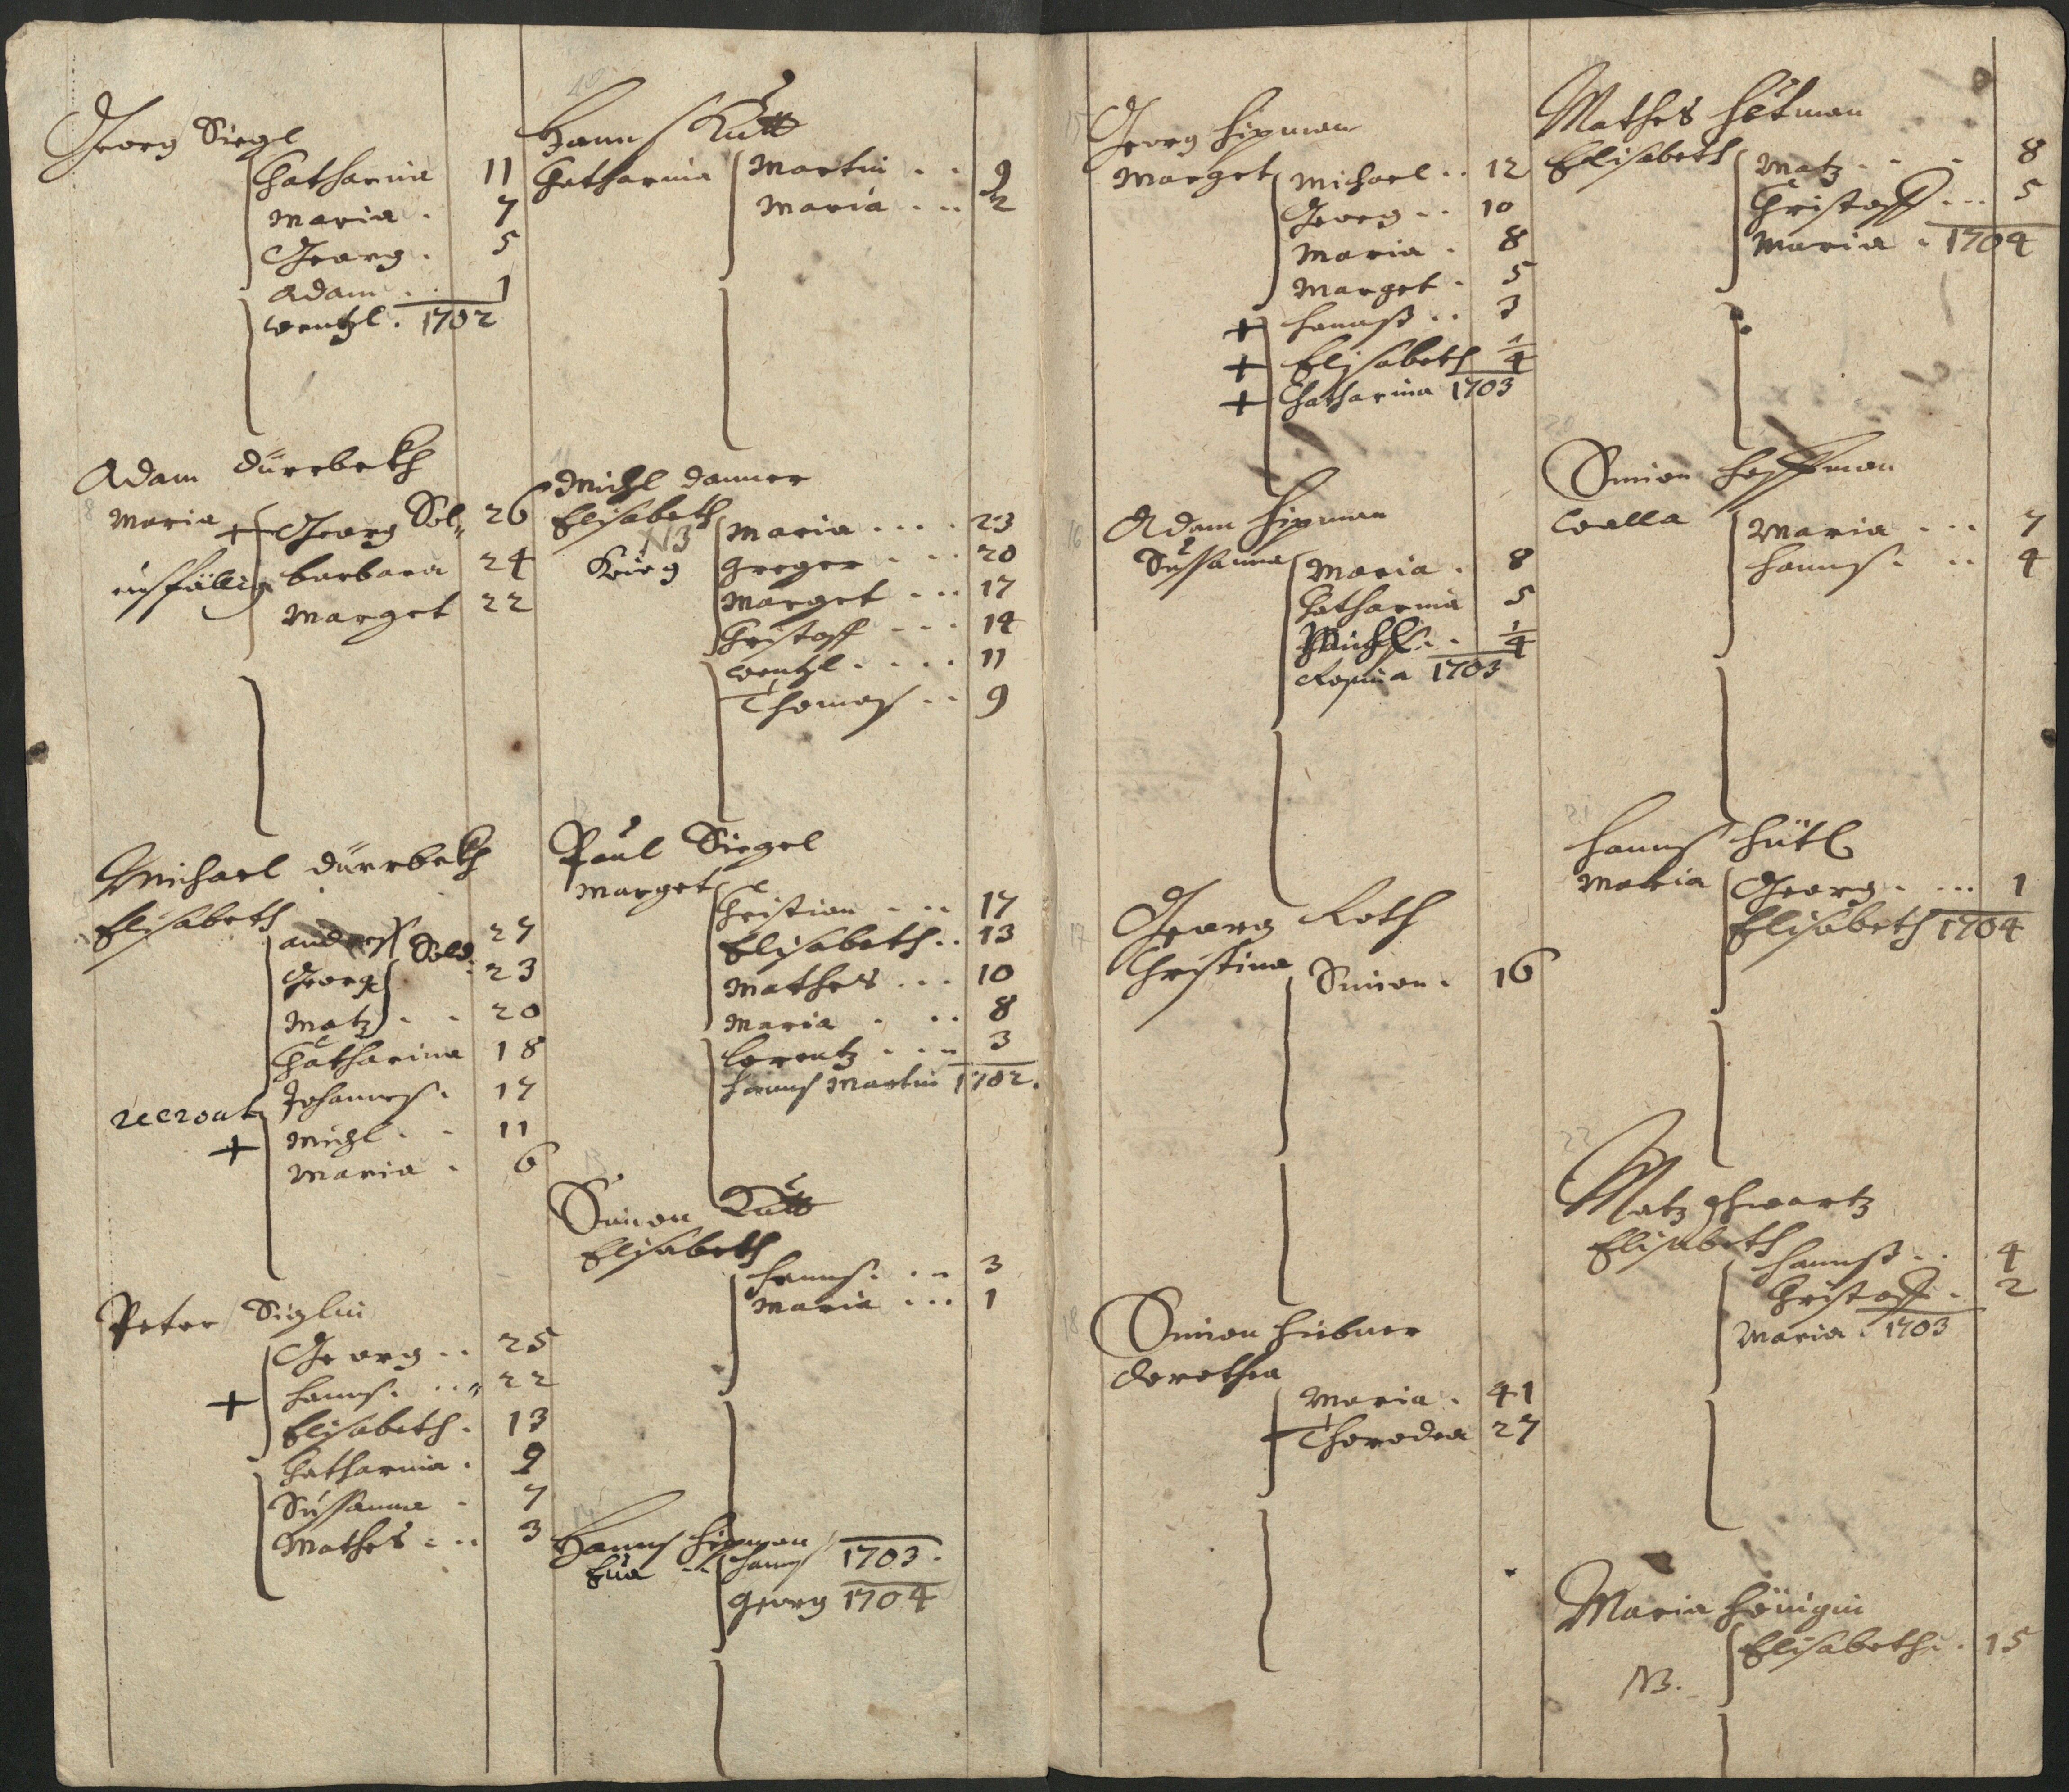 Georg Siegl
Catharina 11
Maria . 7
Georg . 5
Adam . . 1
Wentzl . 1702
Adam Dürrbekh
8
Maria + Georg Sol„ 26
barbara 24
Marget 22
Michael Dürrbekh
Elisabeth
andreß Sold. 27
Georg 23
Matz . . 20
Catharina 18
recrout Johannes . 17
+ Michl . . 11
Maria . 6
Peter Siglin
Georg . . 25
+ Hannß . . . 22
Elisabeth . 13
Catharina . 9
Sussanna . 7
Mathes . . . 3
10
Hannß Kutt
Catharina Martin . . 9
Maria . . . 2
Michl Danner
Elisabeth
NB Maria . . . . 23
Greger . . . 20
Marget . . . 17
Cristoff . . . 14
Wentzl . . . . 11
Thomaß . . 9
Paul Siegel
Marget
Cristian . . . 17
Elisabeth . . 13
Mathes . . . 10
Maria . . . 8
Lorentz . . . 3
Hannß Martin 1702 .
Simon Kutt
Elisabeth
Hannß . . . 3
Maria . . . 1
Hannß Hipman
Eua . . Hannß 1703 .
Georg 1704
15
Georg Hipman
Marget Michael . . 12
Georg . . 10
Maria . 8
Marget . 5
+ Hannß . . 3
+ Elisabeth 1/4
+ Catharina 1703
16
Adam Hipman
Sussanna Maria . 8
Catharina 5
Michl . . 1/4
Rosina 1703
17
Georg Roth
Christina
Simon . 16
18
Simon Hübner
Dorothea
Maria . 41
Thorodea 27
Mathes Hetman
Elisabeth Matz . . . 8
Cristoff . . . 5
Maria . 1704
20
Simon Hoffman
Maria . . . 7
Hannß . . . 4
Hannß Hütl
Maria Georg . . . . 1
Elisabeth 1704
22
Matz Schwartz
Elisabeth
Hannß . . 4
Cristoff . 2
Maria . 1703
Maria Hönigin
Elisabeth . 15
NB.